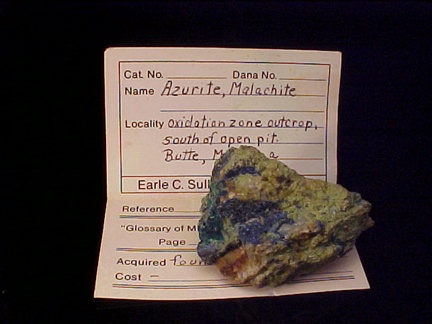 Cat. No. Dana No.
Name Azurite, Malachite
Locality oxidation zone outcrop,
south of open pit.
Butte, M a
Earle C. Sull
Reference
"Glossary of M
Page
Acquired foun
Cost —